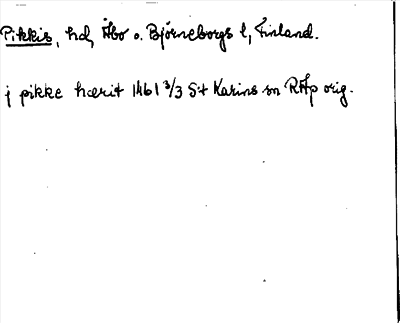 Pikkis, hd, Åbo o. Björneborgs l, Finland.
j pikke hærit 1461 3/3 S:t Karins sn RAp orig.